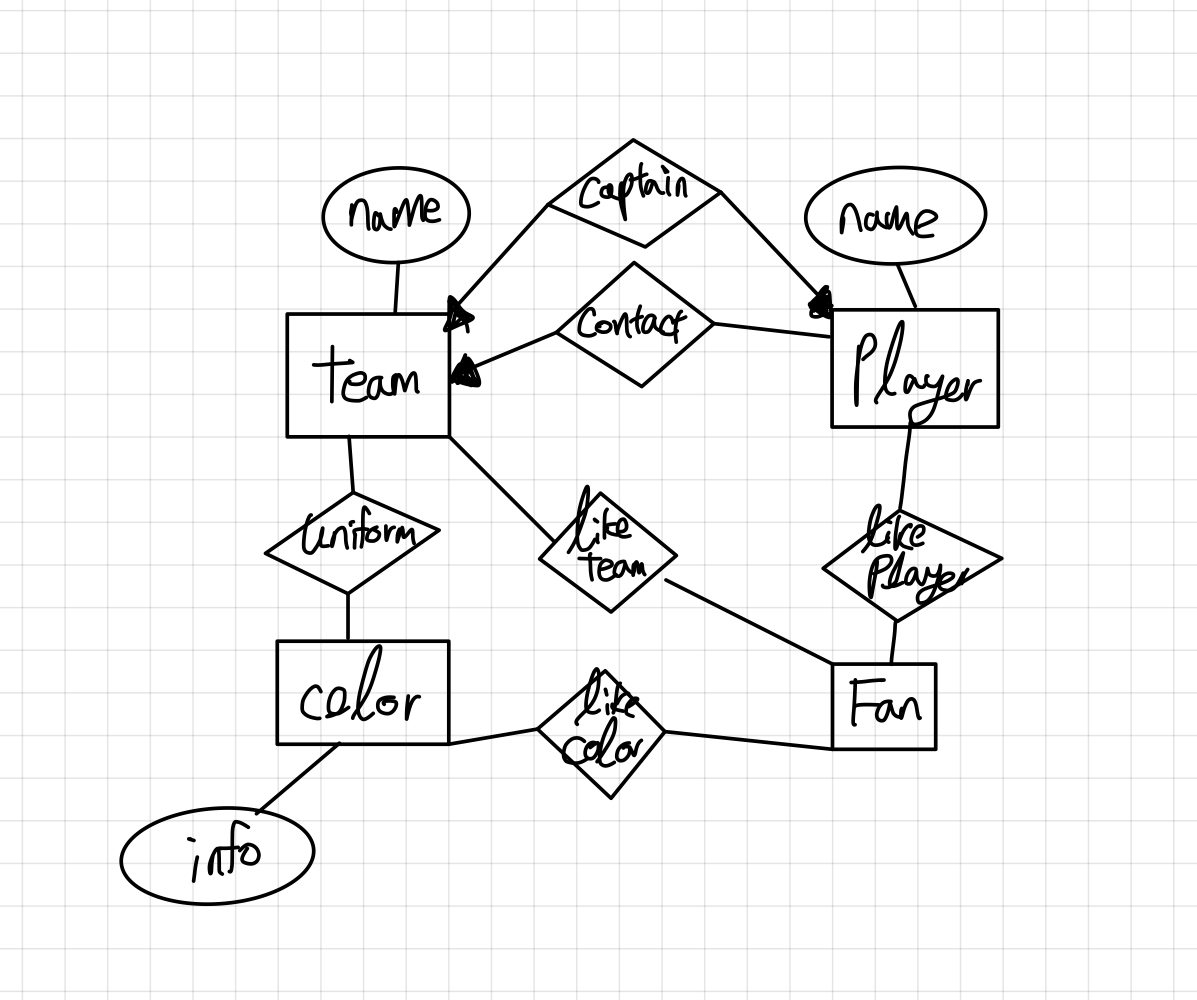 Captain
name
name
Contact
Team
Player
Uniform
like
team
like
Player
color
like
color
Fan
info